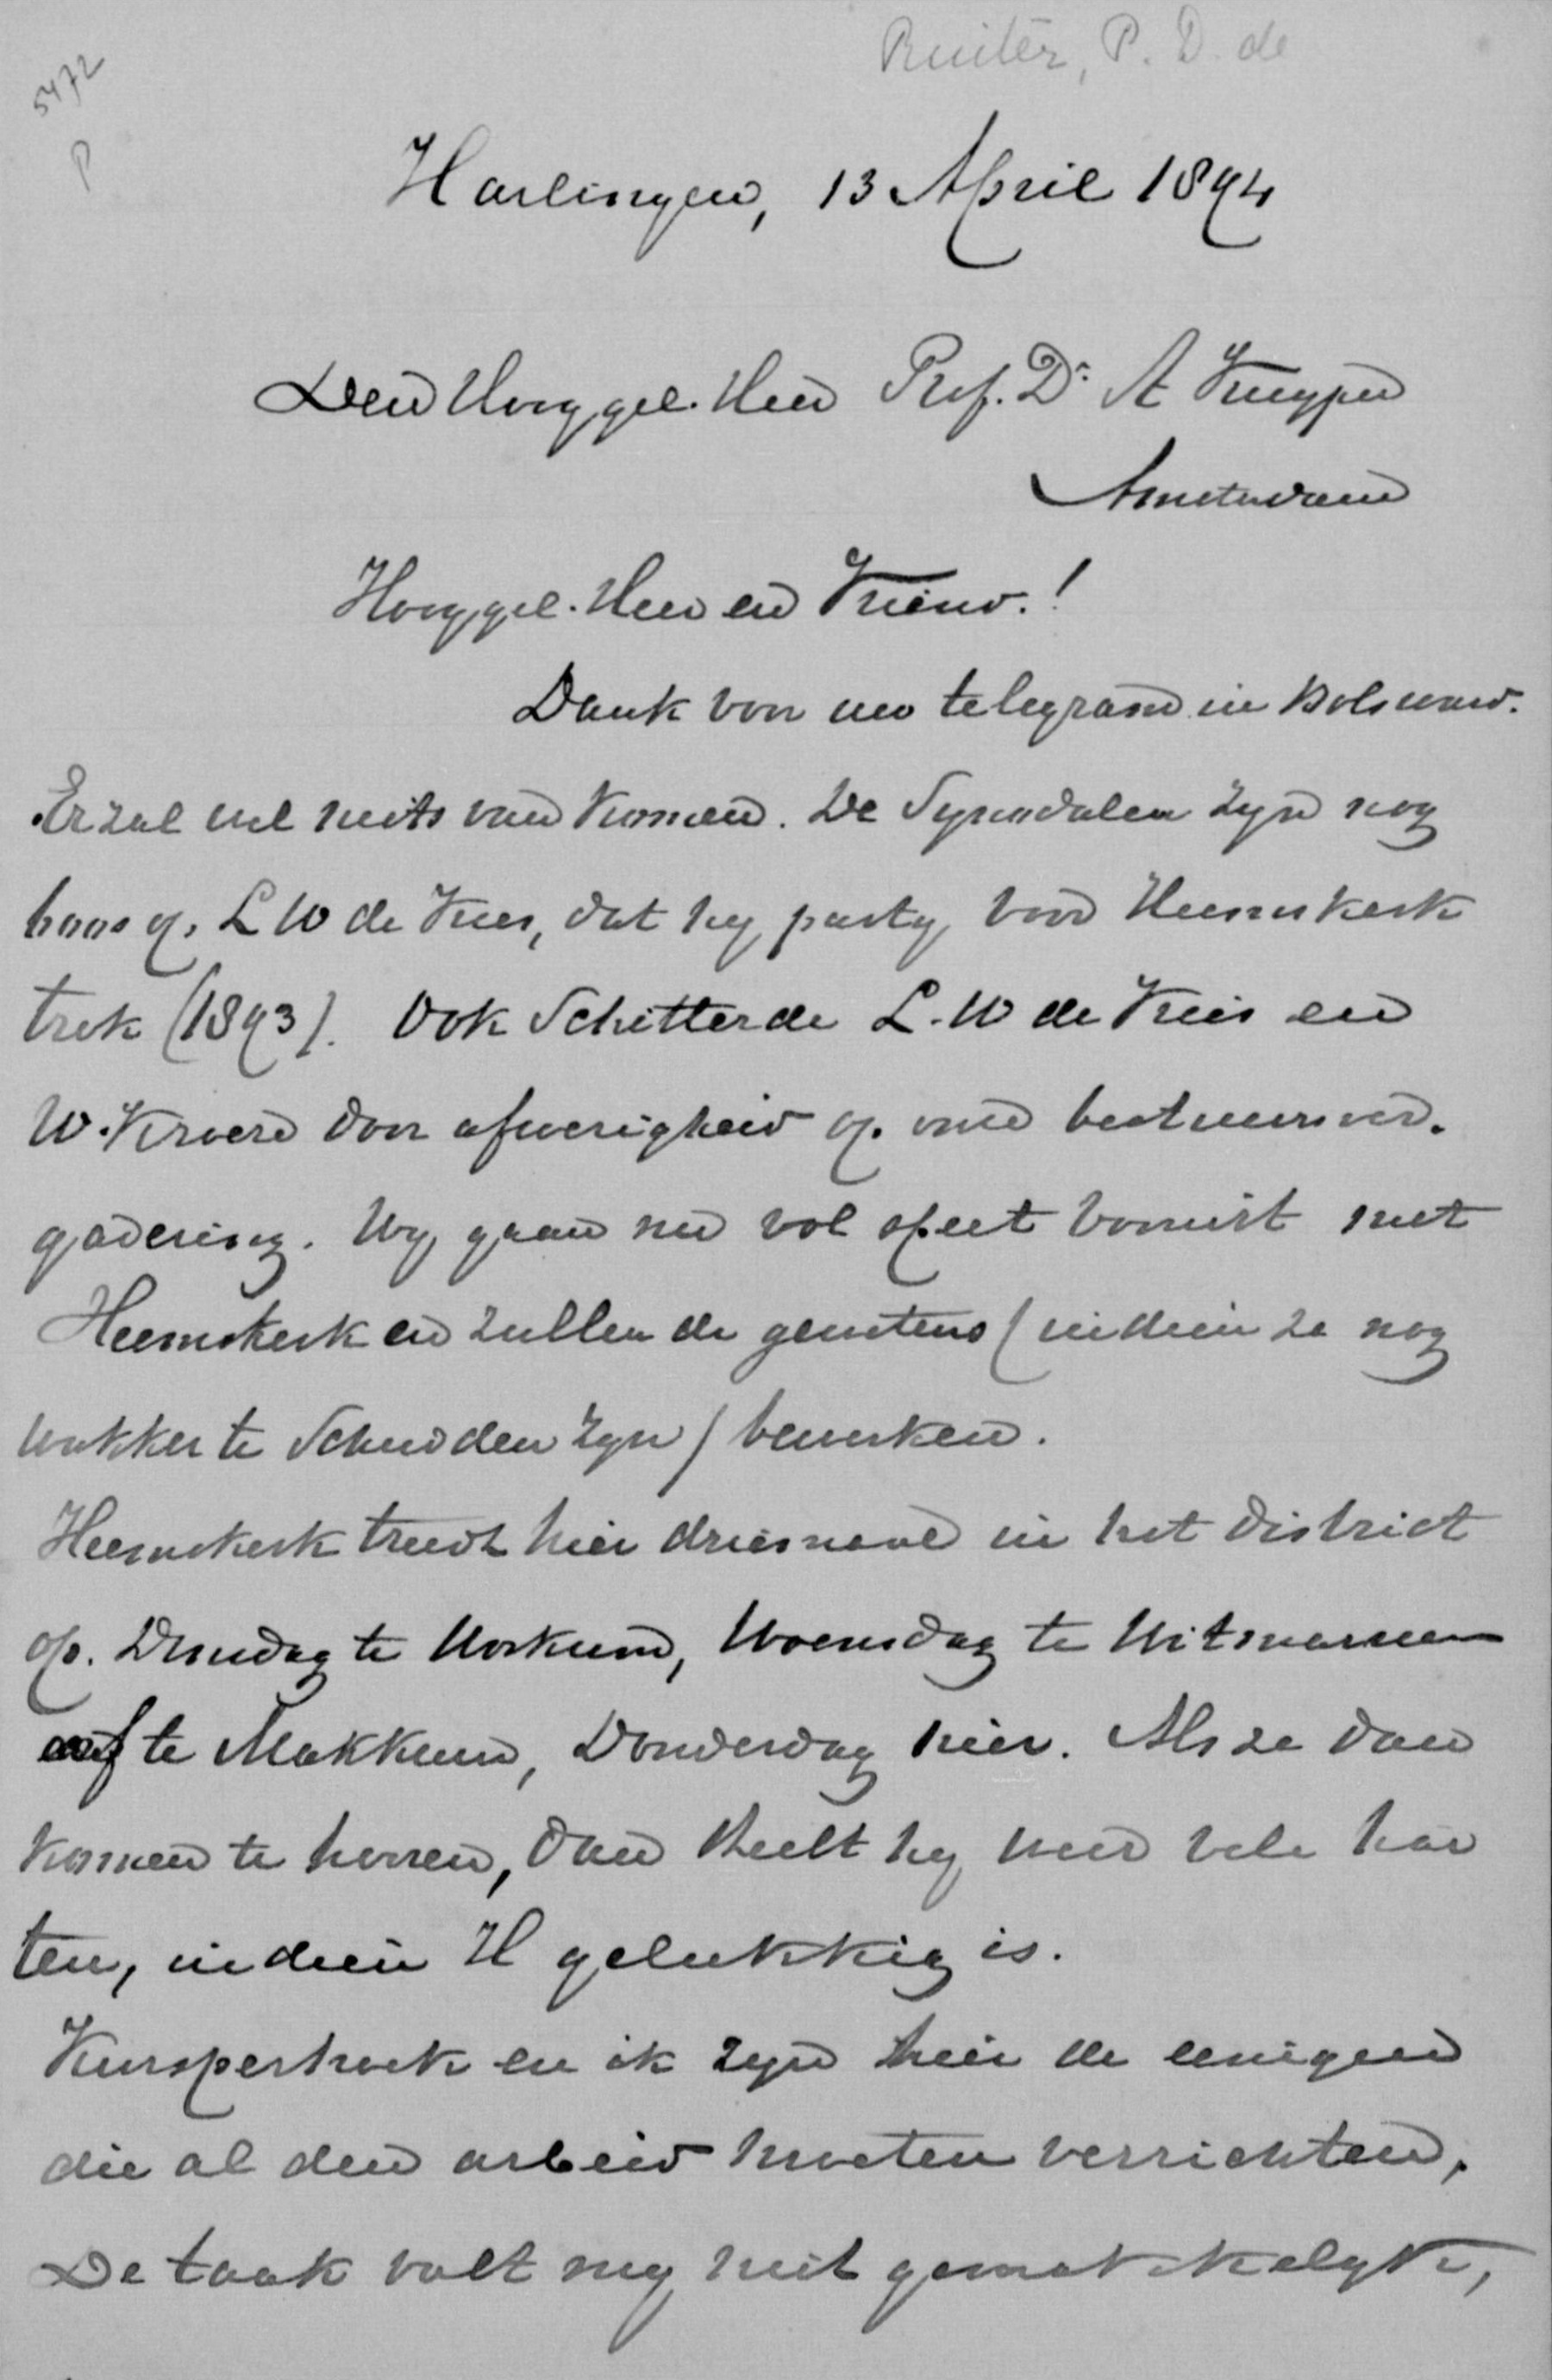 Ruiter, P. D. de
5472
P
Harlingen, 13 April 1894
Den Hooggel. Heer Prof. Dr A Kuyper
Amsterdam
Hooggel. Heer en Vriend!
Dank voor uw telegram in Bolsward.
Er zal wel niets van komen. De Synodalen zyn nog
boos op L W de Vries, dat hy party voor Heemskerk
trok (1893). Ook Schitterde L. W de Vries en
W. Kroese door afwezigheid op onze bestuursver-
gadering. Wy gaan nu vol moed vooruit met
Heemskerk en zullen de gemeten (indien ze nog
wakker te Schudden zyn) bewerken.
Heemskerk treedt hier driemaal in het district
op. Dinsdag te Workum, Woensdag te Witmarsum
of te Makkum, Donderdag hier. Als ze dan
komen te hooren, dan steelt hy weer vele har
ten, indien H gelukkig is.
en ik zyn hier de eenigen
die al den arbeid moeten verrichten.
De taak valt my niet gemakkelyk,